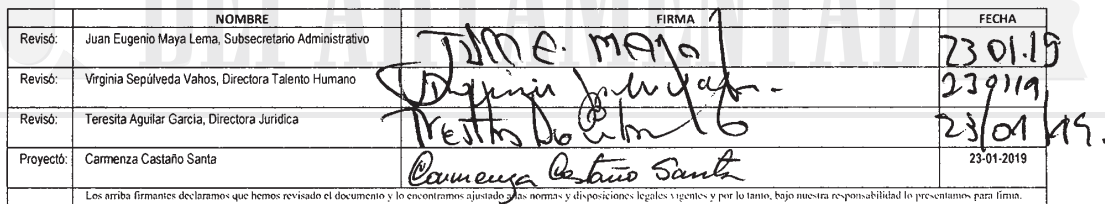 DEPARTAMENTAL
NOMBRE FIRMA FECHA
Revisó: Juan Eugenio Maya Lema, Subsecretario Administrativo 23 01.19
Revisó: Virginia Sepúlveda Vahos, Directora Talento Humano Virginia 230119
Revisó: Teresita Aguilar Garcia, Directora Jurídica 23/01/19.
Proyectó: Carmenza Castaño Santa Carmenza Castaño Santa 23-01-2019
Los arriba firmantes declaramos que hemos revisado el documento y lo encontramos ajustado a las normas y disposiciones legales vigentes y por lo tanto, bajo nuestra responsabilidad lo presentamos para firma.